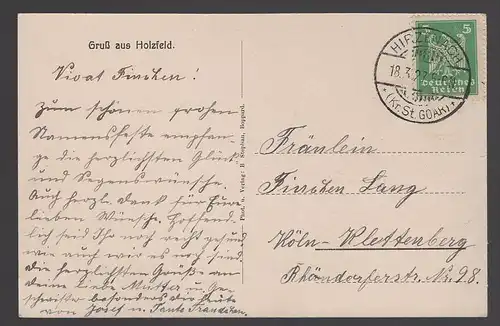 Gruß aus Holzfeld.
Vivat Finchen!
Zum schönen frohen
Namensfeste empfan-
ge die herzlichsten Glück-
und Segenswünsche.
Auch herzl. Dank für Eure
lieben Wünsche. Hoffend-
lich seid Ihr noch recht gesund
wie auch wir es noch sind.
Die herzlichsten Grüße an
deine liebe Mutter u. Ge-
schwister besonders die
von Josef u. Tante
Phot. u. Verlag: B. Stephan, Boppard.
5
Deutsches
Reich
HIRZENACH
18.3.27
* (Kr. St. GOAR) *
Fräulein
Finchen Lang
Köln-Klettenberg
Rhöndorferstr. Nr. 98.